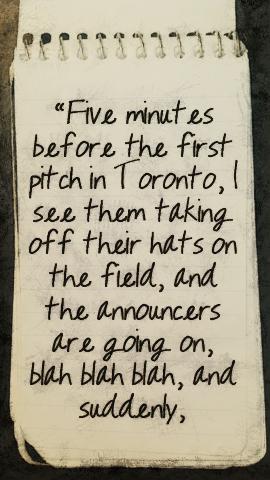 “Five minutes
before the first
pitch in Toronto, I
see them taking
off their hats on
the field, and
the announcers
are going on,
blah blah blah, and
suddenly,